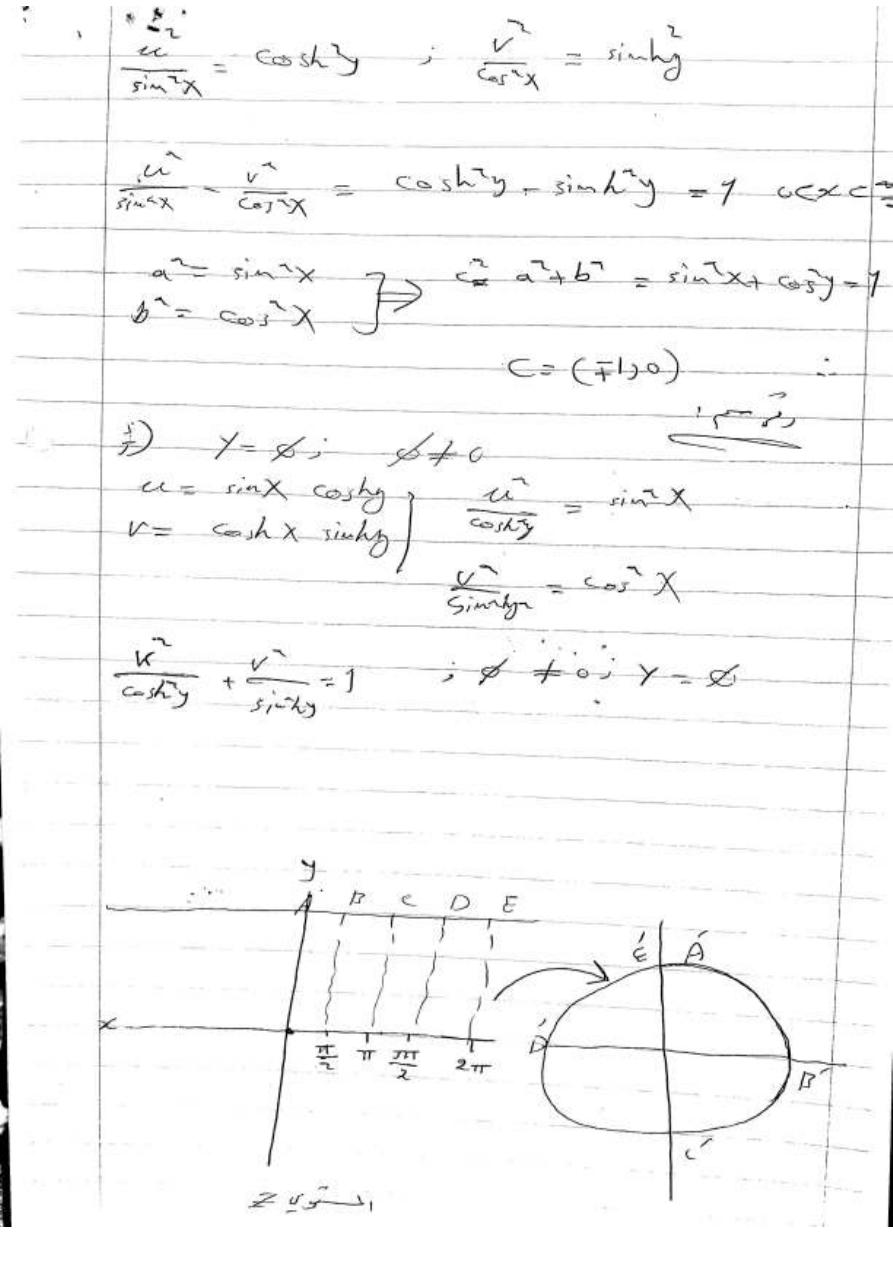 u²/sin²x = cosh²y ; v²/cos²x = sinhy²
u²/sin²x - v²/cos²x = cosh²y - sinh²y = 1 0<x<π/2
a² = sin²x
b² = cos²x
⇒ c² = a²+b² = sin²x + cos²y = 1
C = (∓1,0) ∴
Y = ϕ ; ϕ ≠ 0
u = sinx coshy
v = coshx sinhy
u²/cosh²y = sin²x
v²/sinh²y = cos²x
u²/cosh²y + v²/sinh²y = 1 ; ϕ ≠ 0 ; Y = ϕ
y
A B C D E
É Á
x
π/2 π 3π/2 2π
D́ B́
Ć
المستوي Z